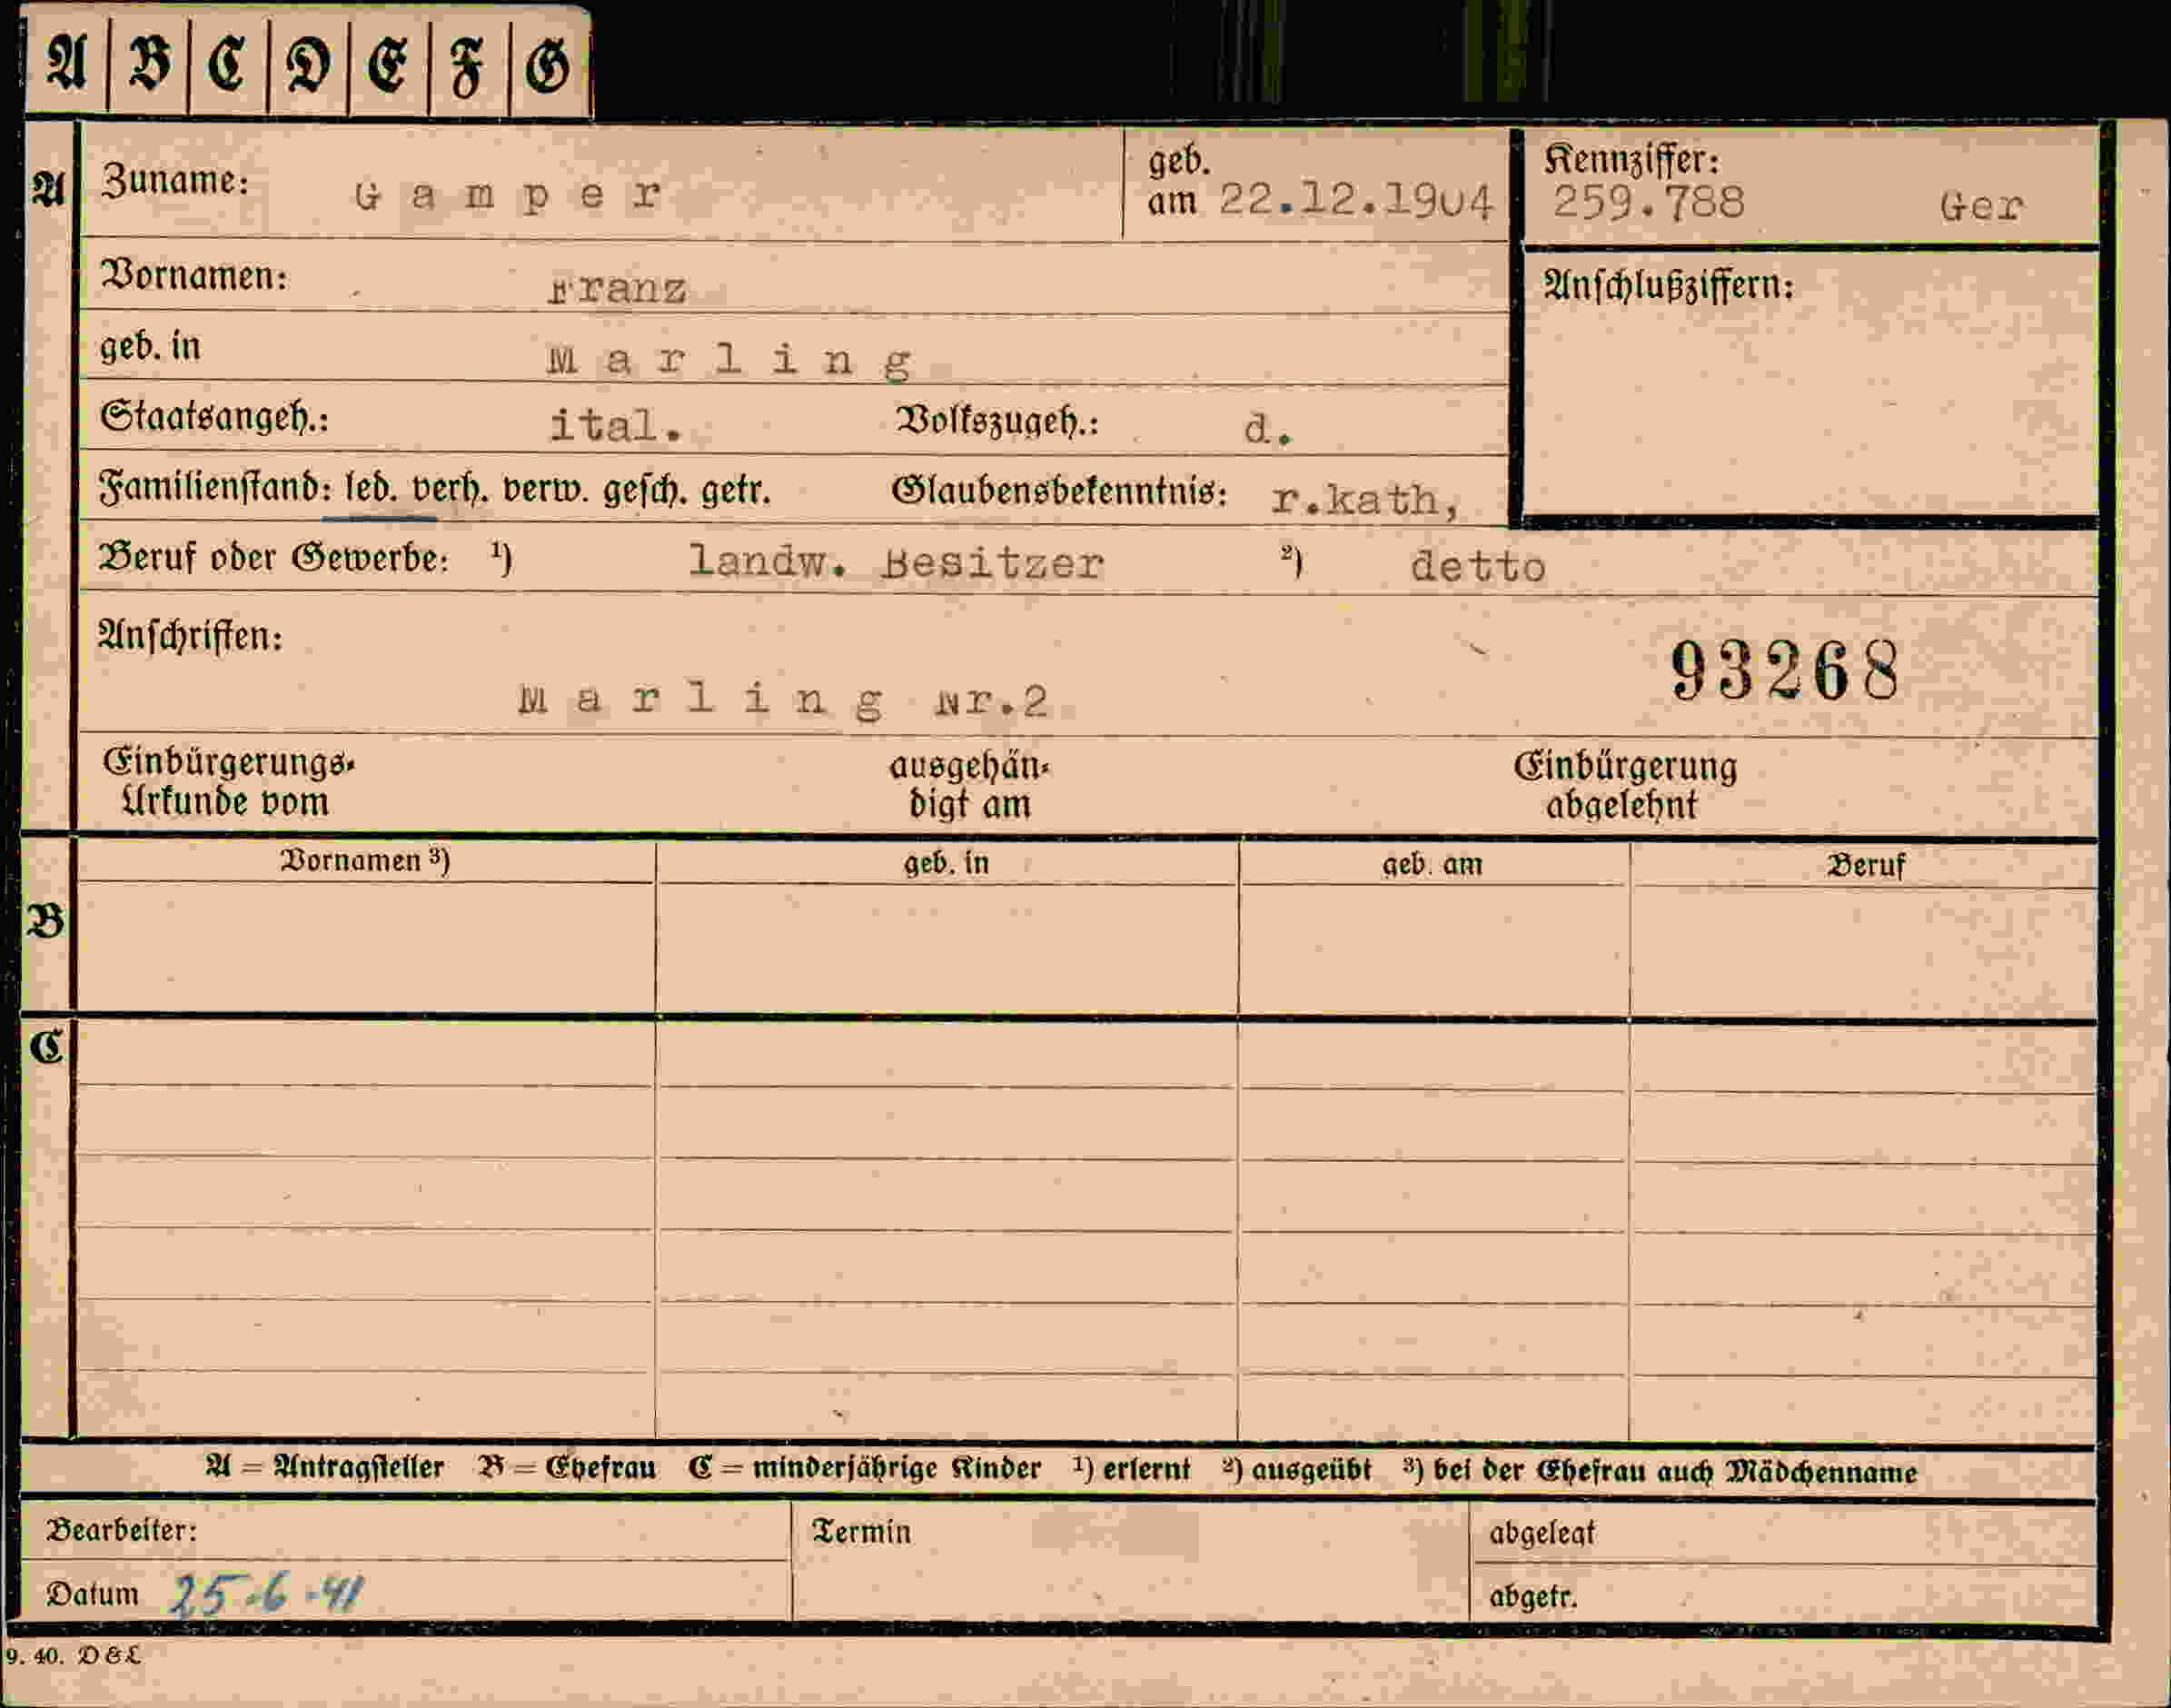 A B C D E F G
A Zuname: Gamper geb. am 22.12.1904 Kennziffer: 259.788 Ger
Vornamen: Franz Anschlußziffern:
geb. in Marling
Staatsangeh.: ital. Volkszugeh.: d.
Familienstand: led. verh. verw. gesch. getr. Glaubensbekenntnis: r.kath,
Beruf oder Gewerbe: ¹) landw. Besitzer ²) detto
Anschriften: 93268
Marling Nr.2
Einbürgerungs- ausgehän- Einbürgerung
Urkunde vom digt am abgelehnt
Vornamen ³) geb. in geb. am Beruf
B
C
A = Antragsteller B = Ehefrau C = minderjährige Kinder ¹) erlernt ²) ausgeübt ³) bei der Ehefrau auch Mädchenname
Bearbeiter: Termin abgelegt
Datum 25.6.41 abgetr.
9. 40. D & L